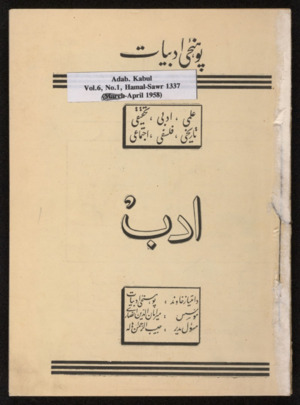 پوهنځی ادبیات
Adab. Kabul
Vol.6, No.1, Hamal-Sawr 1337
(March-April 1958)
علمی ، ادبی ، تحقیقی
تاریخی ، فلسفی ، اجتماعی
ادب
د امتیاز خاوند : پوهنځی ادبیات
موسس : میر امان الدین انصاری
مسؤل مدیر : حبیب الرحمن هاله